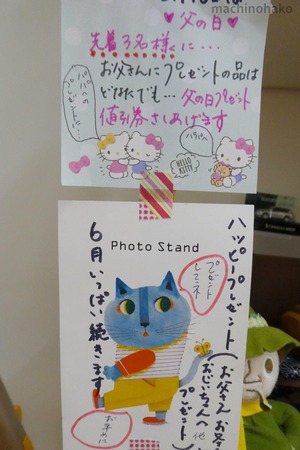 machinohako
♥父の日♥
先着3名様に・・・
お父さんにプレゼントの品は
どなたでも・・・父の日プレゼント
値引券さしあげます
パパへの
プレゼントに…
パパへ
HELLO
KITTY
Photo Stand
ハッピープレゼント
(お父さん
おじいちゃんへ 他
プレゼント)
6月いっぱい続きます
プレゼント
してネ
お早めに